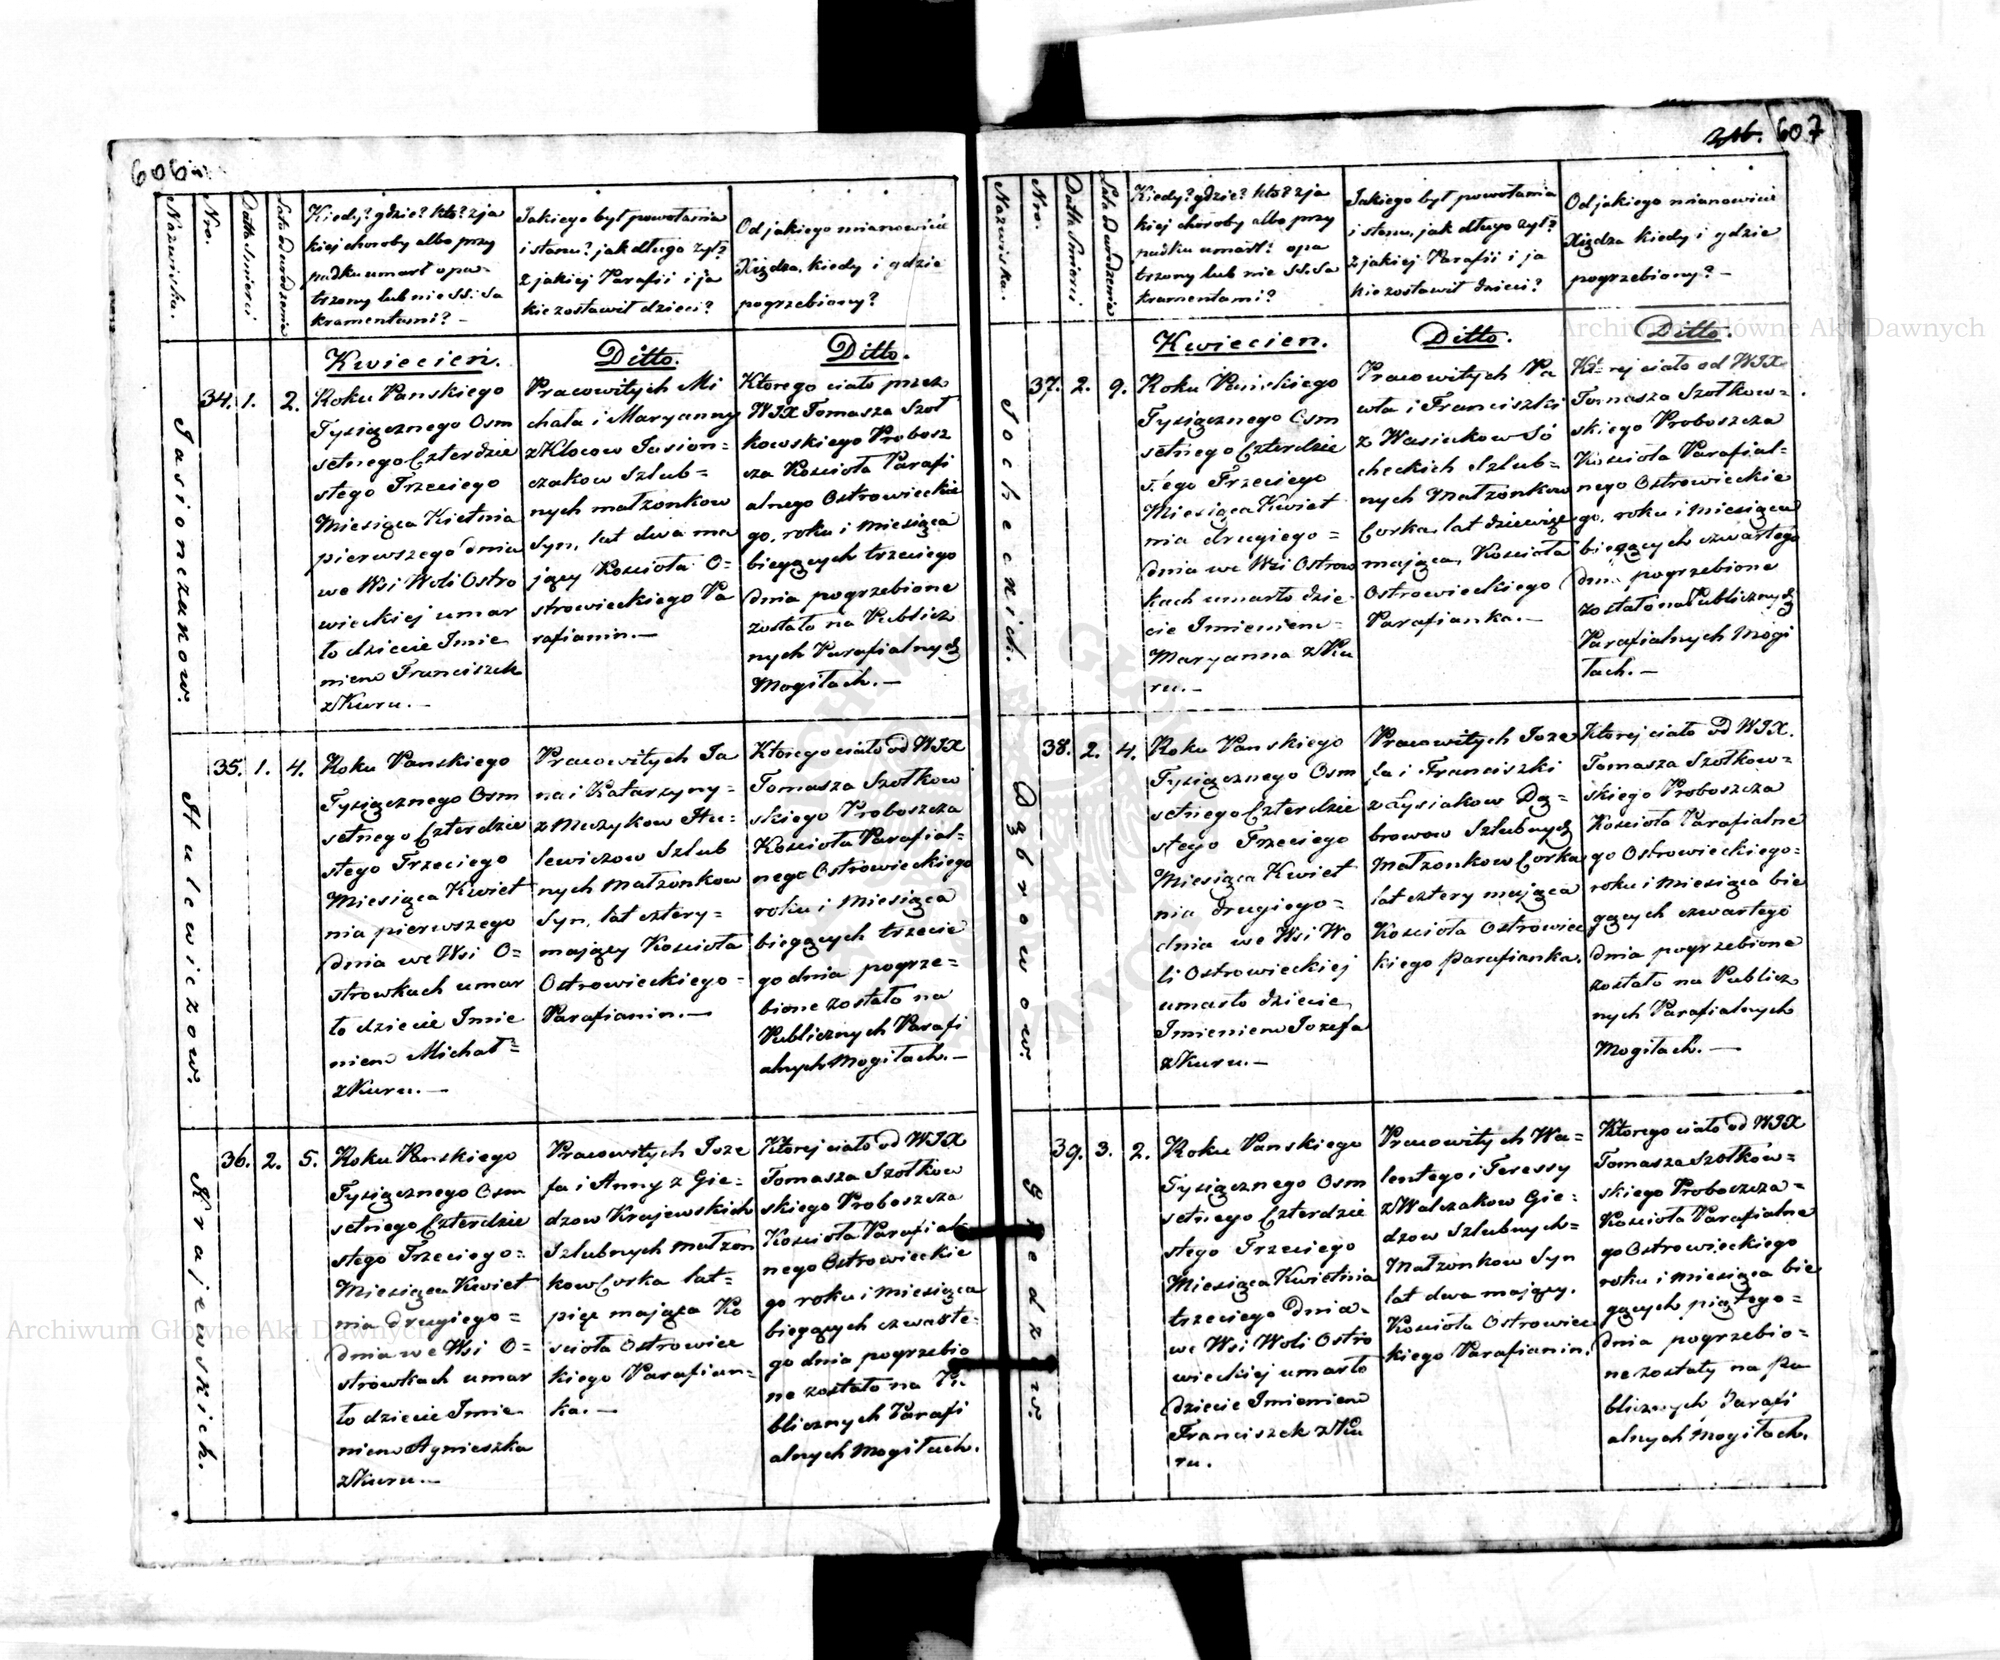 606
Nazwiska.
Nro.
Datta Śmierci
Lata od urodzenia
Kiedy? gdzie? kto? z ja
kiej choroby albo przy
padku umarł opa=
trzony lub nie SS: Sa
kramentami? —
Jakiego był powołania
i stanu? jak długo żył?
z jakiej Parafii i ja
kie zostawił dzieci?
Od jakiego mianowicie
Xiędza, kiedy i gdzie
pogrzebiony?
Jasionczakow.
34. 1. 2.
Kwiecień.
Roku Panskiego
Tysiącznego Osm
setnego Czterdzie
stego Trzeciego
Miesiąca Kietnia
pierwszego dnia
we Wsi Woli Ostro
wieckiej umar
ło dziecie Imie
niem Franciszek
z Kuru. —
Ditto.
Pracowitych Mi
chala i Maryanny
z Kłocow Jasion=
czakow Szlub=
nych małżonkow
Syn, lat dwa ma
jący Kościoła O=
strowieckiego Pa
rafianin. —
Ditto.
Ktorego ciało przez
WJX Tomasza Szoł
kowskiego Probosz
cza Kościoła Parafi
alnego Ostrowieckie
go, roku i miesiąca
bieżących trzeciego
dnia pogrzebione
zostało na Publicz
nych Parafialnych
Mogiłach. —
Hulewiczow.
35. 1. 4.
Roku Panskiego
Tysiącznego Osm
setnego Czterdzie
stego Trzeciego
Miesiąca Kwiet
nia pierwszego
dnia we Wsi O=
strowkach umar
ło dziecie Imie
niem Michał=
z Kuru. —
Pracowitych Ja
na i Katarzyny=
z Muzykow Hu=
lewiczow Szlub
nych Małżonkow
Syn, lat cztery=
mający Kościoła
Ostrowieckiego=
Parafianin. —
Ktorego ciało od WJX
Tomasza Szołkow
skiego Proboszcza
Kościoła Parafial=
nego Ostrowieckiego
roku i Miesiąca
bieżących trzecie
go dnia pogrze=
bione zostało na
Publicznych Parafi
alnych Mogiłach. —
Krajewskich.
36. 2. 5.
Roku Panskiego
Tysiącznego Osm
setnego Czterdzie
stego Trzeciego=
Miesiąca Kwiet
nia drugiego=
dnia we Wsi O=
strowkach umar
ło dziecie Imie
niem Agnieszka
z Kuru. —
Pracowitych Joze
fa i Anny z Gie=
dzow Krajewskich
Szlubnych Małżon
kow Corka lat=
pięc mająca Ko
scioła Ostrowiec
kiego Parafian=
ka. —
Ktorej ciało od WJX
Tomasza Szołkow
skiego Proboszcza
Kościoła Parafial
nego Ostrowieckie
go roku i Miesiąca
bieżących czwarte=
go dnia pogrzebio
ne zostało na Pu
blicznych Parafi
alnych Mogiłach.
607
Nazwiska.
Nro.
Datta Śmierci
Lata od urodzenia
Kiedy? gdzie? kto? z ja
kiej choroby albo przy
padku umarł? opa
trzony lub nie SS. Sa
kramentami?
Jakiego był powołania
i stanu, jak długo żył?
z jakiej Parafii i ja
kie zostawił dzieci?
Od jakiego mianowicie
Xiędza kiedy i gdzie
pogrzebiony? —
Sochecnich.
37. 2. 9.
Kwiecien.
Roku Panskiego
Tysiącznego Osm
setnego Czterdzie
stego Trzeciego
Miesiąca Kwiet
nia drugiego=
dnia we Wsi Ostrow
kach umarło dzie
cie Imieniem=
Maryanna z Ku
ru. —
Ditto.
Pracowitych Pa
wła i Franciszki
z Wasiukow So
checkich Szlub=
nych Małżonkow
Corka, lat dziewięc
mająca, Kościoła
Ostrowieckiego
Parafianka. —
Ditto.
Ktorej ciało od WJX
Tomasza Szołkow=
skiego Proboszcza
Kościoła Parafial=
nego Ostrowieckie
go, roku i Miesiąca
bieżących czwartego
dnia pogrzebione
zostało na Publicznych
Parafialnych Mogi
łach. —
Dąbrowow.
38. 2. 4.
Roku Panskiego
Tysiącznego Osm
setnego Czterdzie
stego Trzeciego
Miesiąca Kwiet
nia drugiego=
dnia we Wsi Wo
li Ostrowieckiej
umarło dziecie
Imieniem Jozefa
z Kuru. —
Pracowitych Joze
fa i Franciszki
z Łysiakow Dą=
browow Szlubnych
Małżonkow Corka
lat cztery mająca
Kościoła Ostrowiec
kiego Parafianka.
Ktorej ciało od WJX.
Tomasza Szołkow=
skiego Proboszcza
Kościoła Parafialne
go Ostrowieckiego=
roku i Miesiąca bie
żących czwartego
dnia pogrzebione
zostało na Publicz
nych Parafialnych
Mogiłach. —
Giedzow.
39. 3. 2.
Roku Panskiego
Tysiącznego Osm
setnego Czterdzie
stego Trzeciego
Miesiąca Kwietnia
trzeciego dnia=
we Wsi Woli Ostro
wieckiej umarło
dziecie Imieniem
Franciszek z Ku
ru.
Pracowitych Wa=
lentego i Teressy
z Walczakow Gie=
dzow Szlubnych=
Małżonkow Syn
lat dwa mający.
Kościoła Ostrowiec
kiego Parafianin.
Ktorego ciało od WJX
Tomasza Szołkow=
skiego Proboszcza=
Kościoła Parafialne
go Ostrowieckiego
roku i Miesiąca bie
żących piątego=
dnia pogrzebio=
ne zostały na Pu
blicznych Parafi
alnych Mogiłach.
Archiwum Główne Akt Dawnych
Archiwum Główne Akt Dawnych